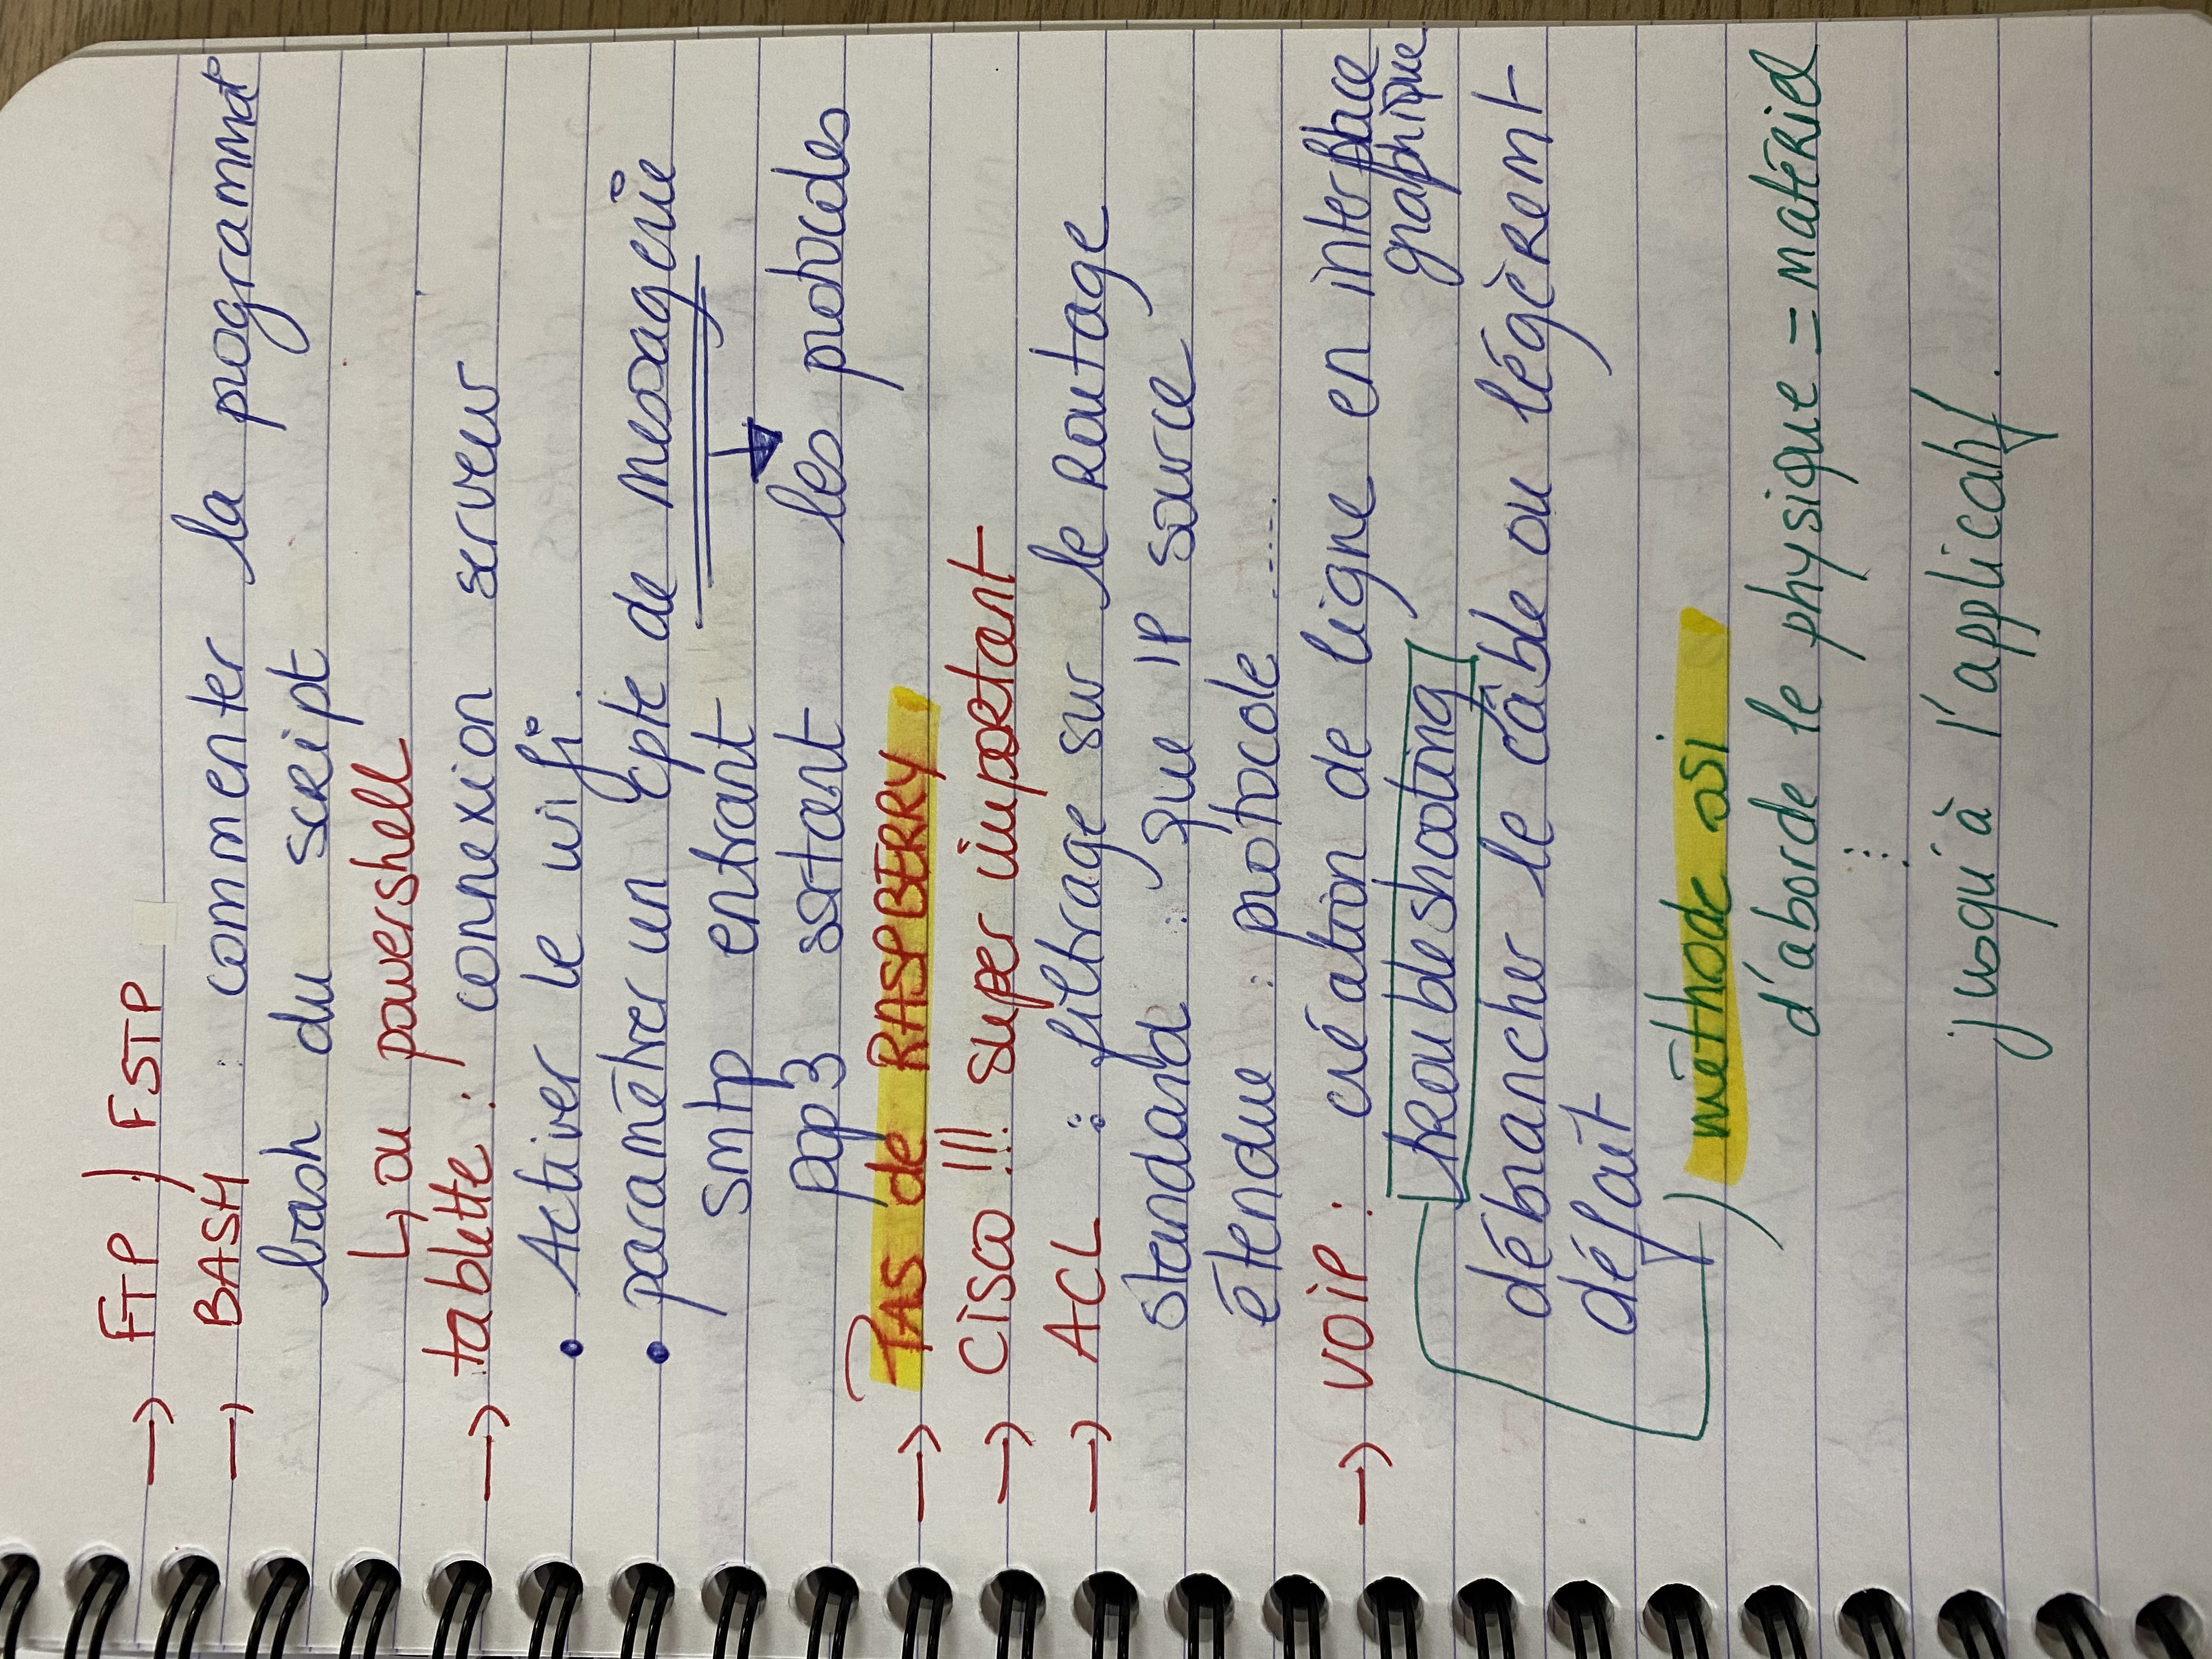 → FTP / FSTP
→ BASH : commenter la programmat°
bash du script
↳ ou powershell
→ tablette : connexion serveur
• Activer le wifi.
• paramétrer un cpte de messagerie
smtp entrant
pop3 sortant les protocoles
→ PAS de RASPBERRY
→ Cisco !!! super important
→ ACL : filtrage sur le Routage
standard : que IP source
étendue : protocole .....
→ VOIP : création de ligne en interface
graphique
troubleshooting
débrancher le câble ou légèremt
défait
méthode osi
d'aborde le physique = matériel
⋮
jusqu'à l'applicatif.